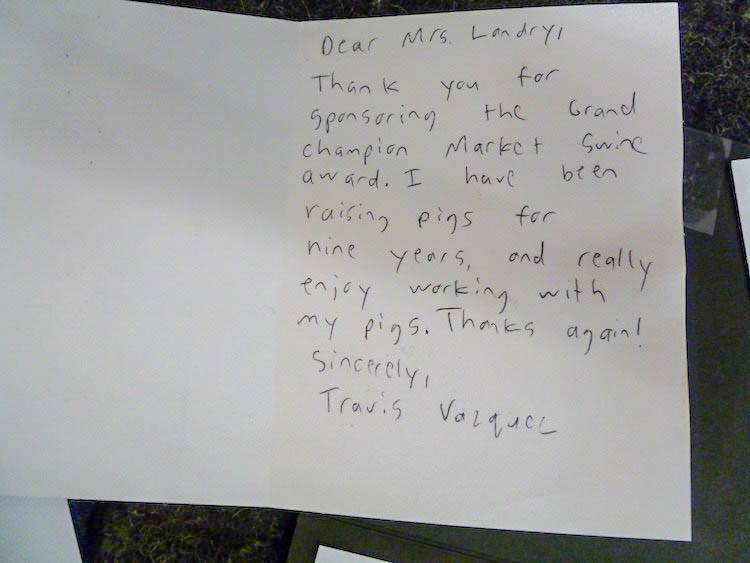 Dear Mrs. Landry,
Thank you for
sponsoring the Grand
champion Market Swine
award. I have been
raising pigs for
nine years, and really
enjoy working with
my pigs. Thanks again!
Sincerely,
Travis Vazquez